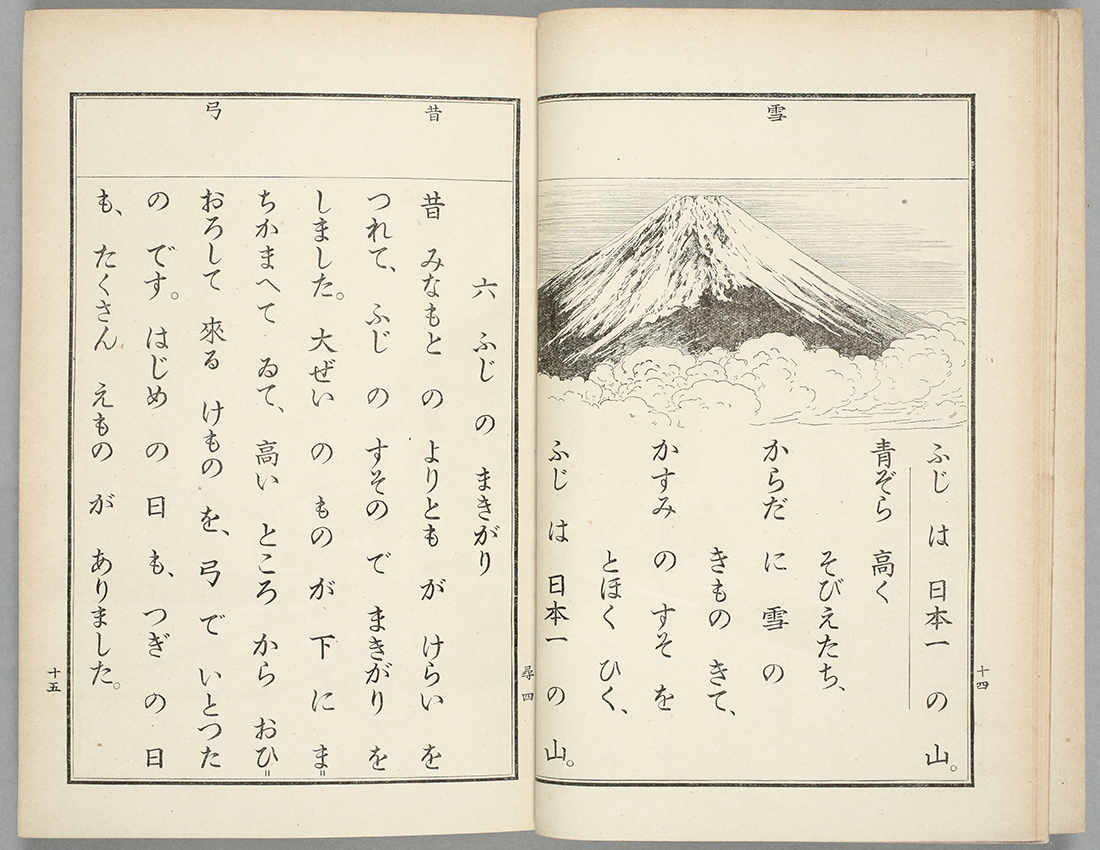 雪
ふじ は 日本一 の 山。
青ぞら 高く
そびえたち、
からだ に 雪 の
きもの きて、
かすみ の すそ を
とほく ひく、
ふじ は 日本一 の 山。
十四
尋四
昔
弓
六 ふじ の まきがり
昔 みなもと の よりとも が けらい を
つれて、ふじ の すその で まきがり を
しました。大ぜい の もの が 下 に ま゠
ちかまへて ゐて、高い ところ から おひ゠
おろして 來る けもの を、弓 で いとつた
の です。はじめ の 日 も、つぎ の 日
も、たくさん えもの が ありました。
十五